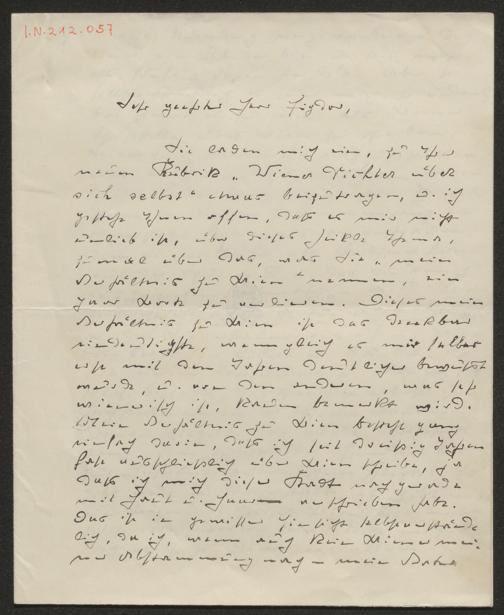 I.N. 212.057
Sehr geehrter Herr Zigdor,
Sie laden mich ein, zu Ihrer
neuen Rubrik „Wiener Dichter über
sich selbst“ etwas beizutragen, u. ich
gestehe Ihnen offen, daß es mir nicht
unlieb ist, über dieses Thema,
zumal über das, was Sie „mein
Verhältnis zu Wien“ nennen, ein
paar Worte zu verlieren. Dieses mein
Verhältnis zu Wien ist das denkbar
eindeutigste, wenngleich es mir selber
erst mit den Jahren deutlicher bewußt
wurde, u. von den anderen, was sehr
wienerisch ist, kaum bemerkt wird.
Mein Verhältnis zu Wien besteht ganz
einfach darin, daß ich seit dreißig Jahren
fast ausschließlich über Wien schreibe, ja
daß ich mich dieser Stadt nachgerade
mit Haut u. Haaren verschrieben habe.
Das ist in gewisser Hinsicht selbstverständ-
lich, da ich, wenn auch kein Wiener mei-
ner Abstammung nach – mein Vater